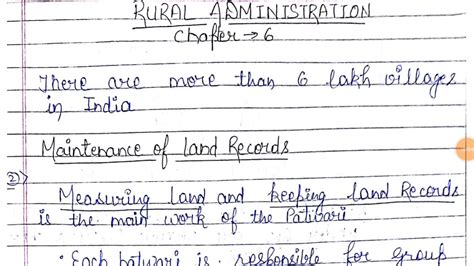 RURAL ADMINISTRATION
Chapter → 6
There are more than 6 lakh villages
in India
Maintenance of land Records
2)
Measuring land and keeping land Records
is the main work of the Patwari
• Each patwari is responsible for group